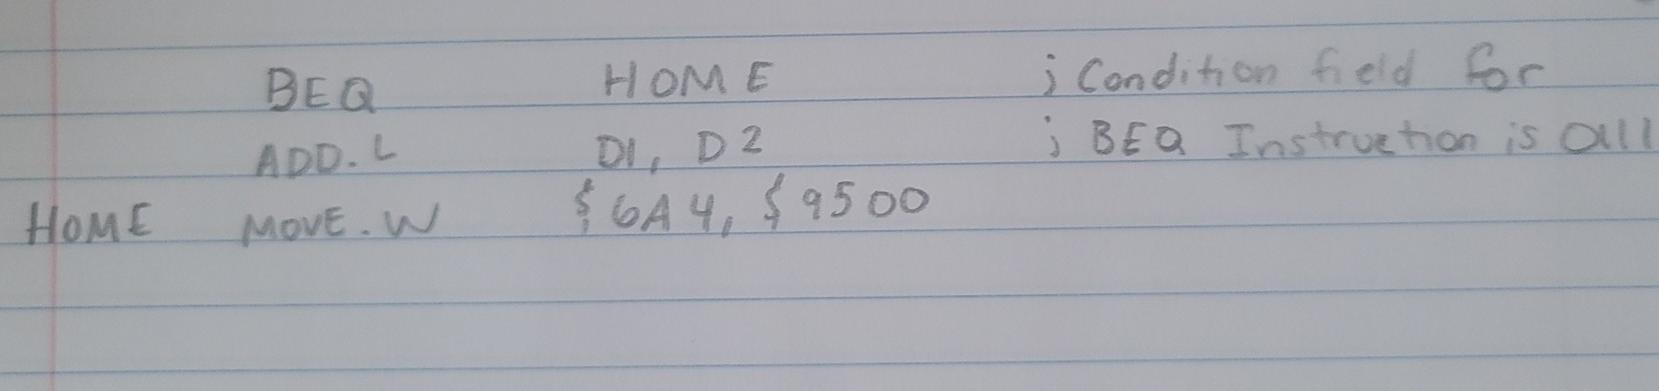 BEQ HOME ; Condition field for
ADD.L D1, D2 ; BEQ Instruction is all
HOME MOVE.W $6A4, $9500